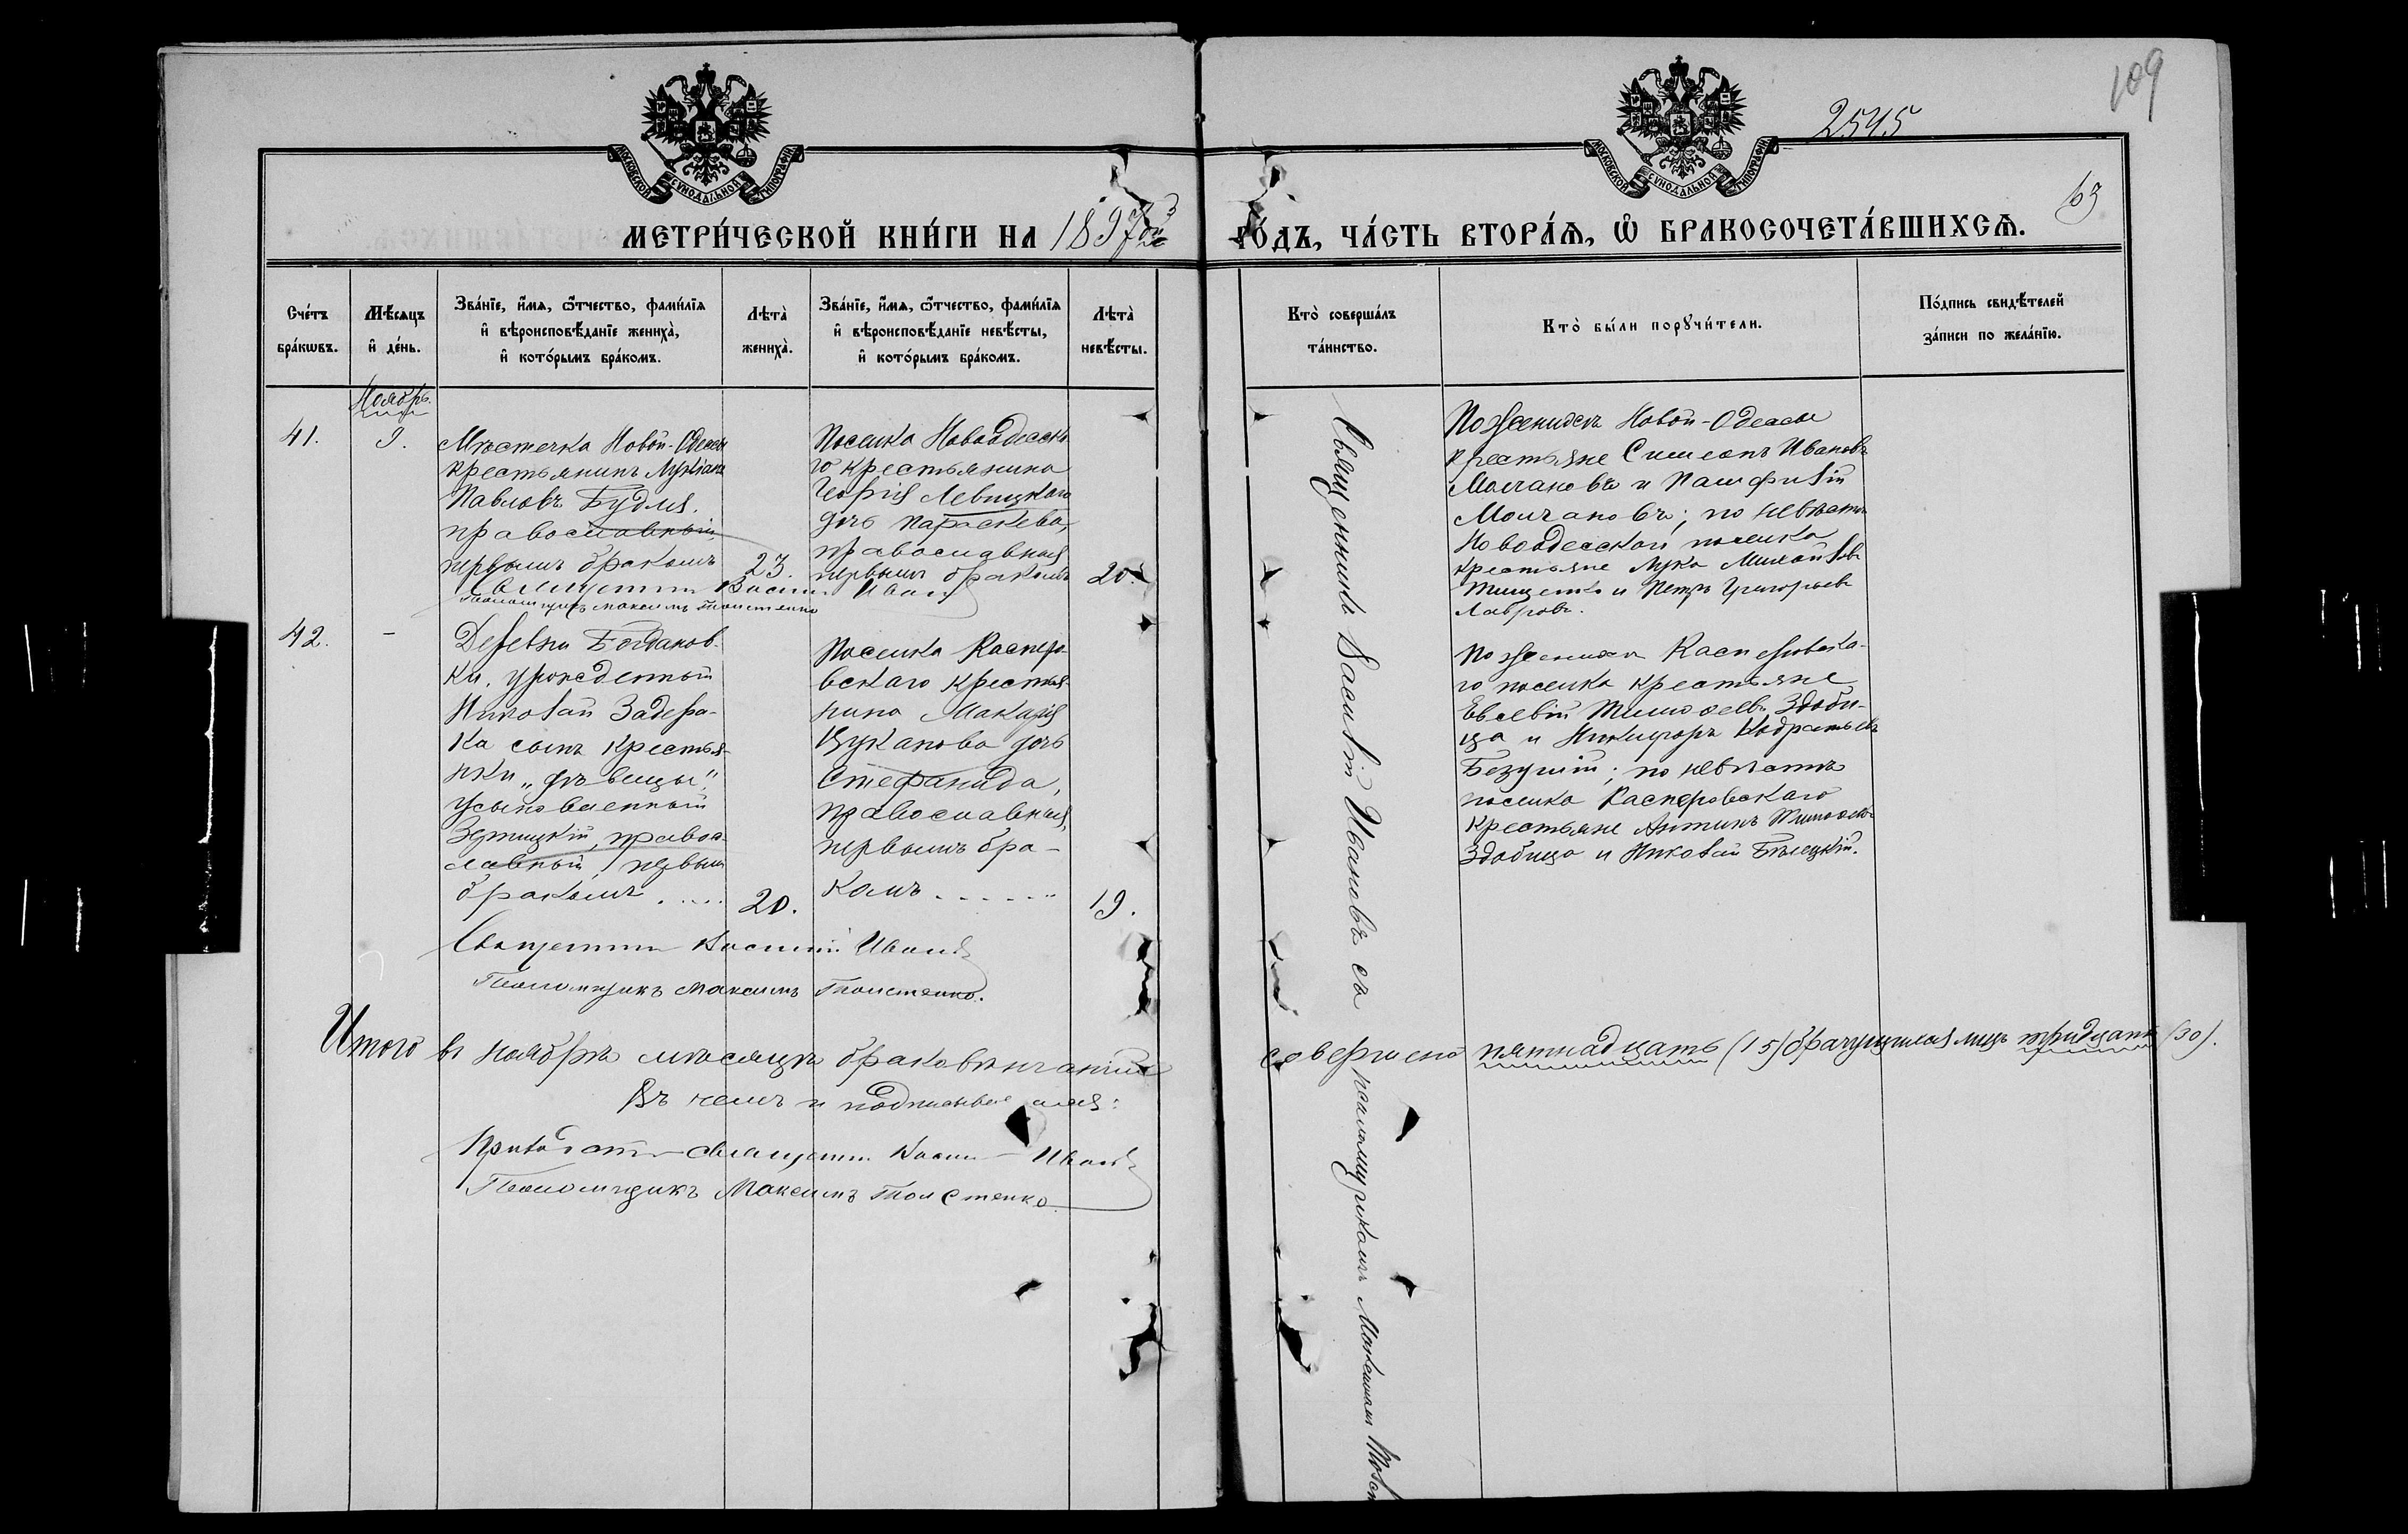 109
2545
63
МОСКОВСКОЙ СѴНОДАЛЬНОЙ ТИПОГРАФІИ
МОСКОВСКОЙ СѴНОДАЛЬНОЙ ТИПОГРАФІИ
МЕТРИ́ЧЕСКОЙ КНИ́ГИ НА 1897 ГО́ДЪ, ЧА́СТЬ ВТОРА́Ѧ, Ѡ҆ БРАКОСОЧЕТА́ВШИХСѦ.
Сче́тъ
бра́кѡвъ.
Мѣ́сяцъ
и҆ де́нь.
Зва́нїе, и҆́мѧ, ѻ҆́тчество, фами́лїѧ
и҆ вѣроисповѣ́данїе жениха̀,
и҆ кото́рымъ бра́комъ.
Лѣта̀
жениха̀.
Зва́нїе, и҆́мѧ, ѻ҆́тчество, фами́лїѧ
и҆ вѣроисповѣ́данїе невѣ́сты,
и҆ кото́рымъ бра́комъ.
Лѣта̀
невѣ́сты.
Кто̀ соверша́лъ
та́инство.
Кто̀ бы́ли порꙋчи́тели.
По́дпись свидѣ́телей
за́писи по жела́нїю.
Ноябрь.
41.
9.
Мѣстечка Новой-Одессы
крестьянинъ Лукіанъ
Павловъ Будля.
православный,
первымъ бракомъ
23.
Поселка Новоодесска-
го крестьянина
Георгія Левицкого
дочь Параскева,
православная
первымъ бракомъ
20.
Священникъ Василій Ивановъ
Псаломщикъ Максимъ Толстенко
По женихѣ Новой-Одессы
крестьяне Симеонъ Ивановъ
Молчановъ и Памфилій
Молчановъ; по невѣстѣ
Новоодесскаго поселка
крестьяне Лука Михайловъ
Тищенко и Петръ Григорьевъ
Лавровъ.
42.
-
Деревни Богданов-
ки, урожденный
Николай Задера-
ка сынъ крестья-
нки „дѣвицы",
усыновленный
православный, первымъ
бракомъ....
20.
Поселка Касперо-
вскаго крестья-
нина Макарія
Цуканова дочь
Стефанида,
православная,
первымъ бра-
комъ......
19.
По женихѣ Касперовска-
го поселка крестьяне
Евсевій Тимофеевъ Здоби-
ца и Никифоръ Кодратьевъ
Безуглій; по невѣстѣ
поселка Касперовскаго
крестьяне Антипъ Тимофеевъ
Здобица и Николай Бѣлецкій.
Священникъ Василій Ивановъ
Псаломщикъ Максимъ Толстенко.
Священникъ Василій Ивановъ съ псаломщикомъ Максимомъ
Итого въ ноябрѣ мѣсяцѣ браковѣнчаній совершено пятнадцать (15) брачущихся лицъ тридцать (30).
Въ чемъ и подписываемся:
священникъ Василій Ивановъ
Псаломщикъ Максимъ Толстенко